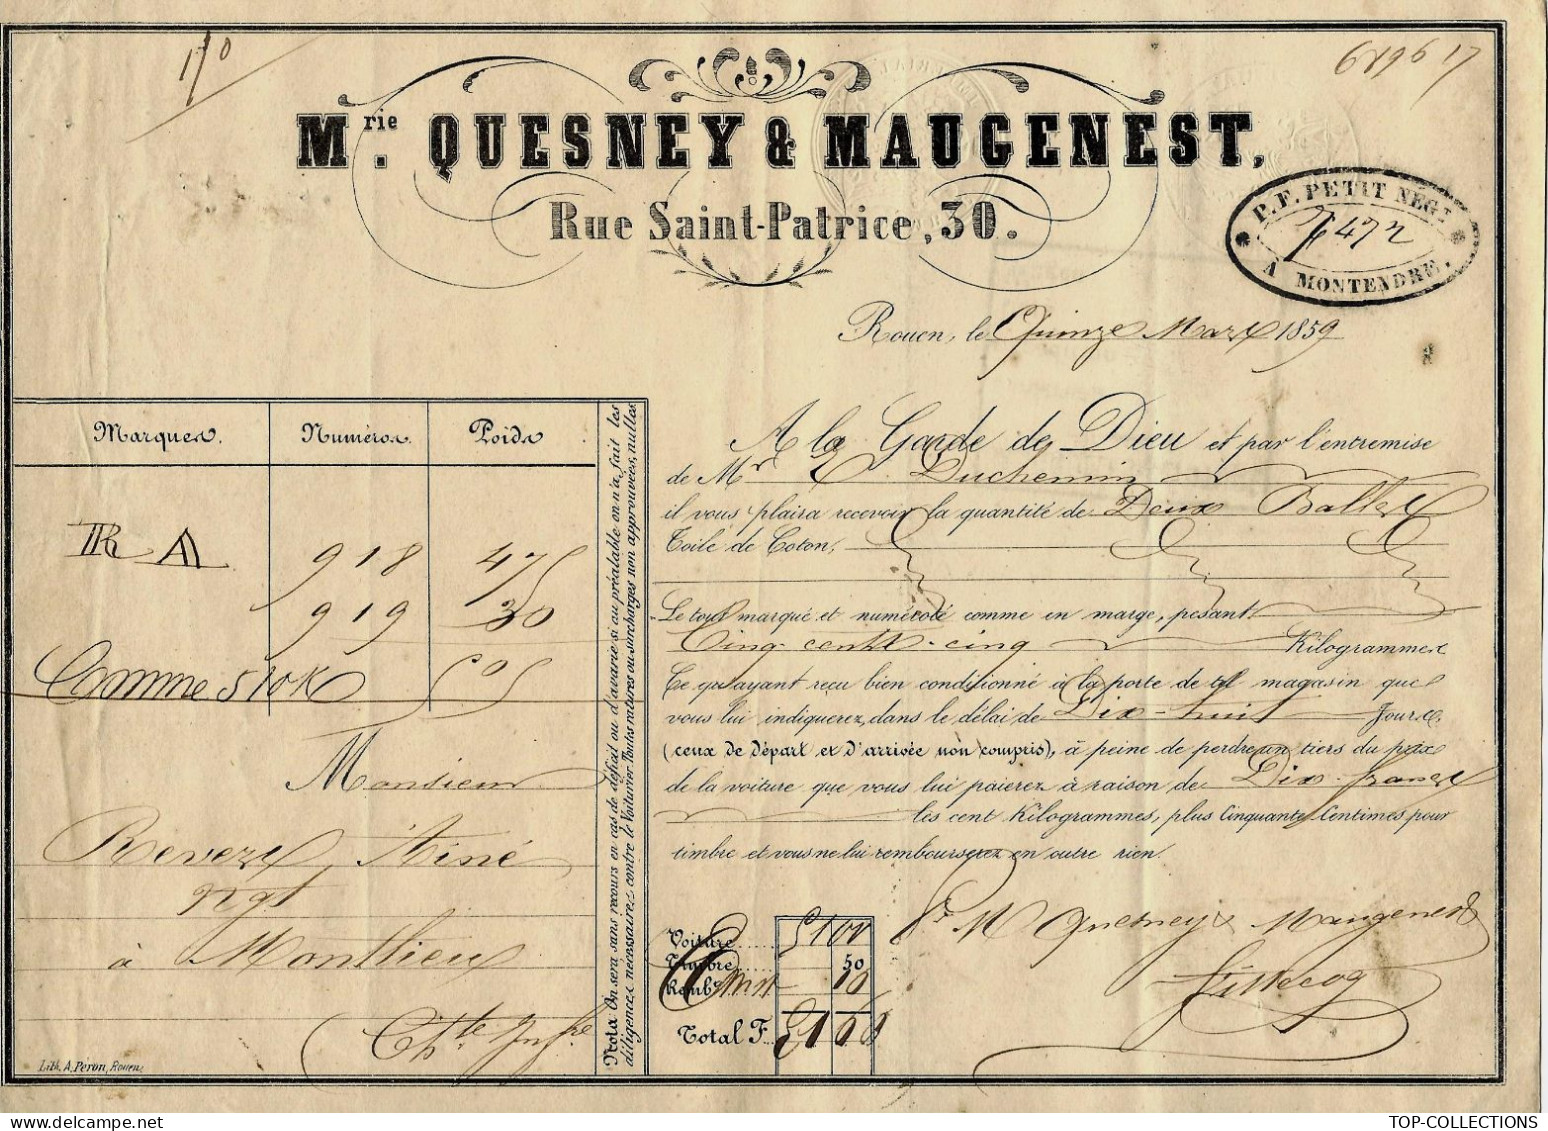 170
6196 17
Mrie. QUESNEY & MAUGENEST,
Rue Saint-Patrice, 30.
P. F. PETIT NÉGT
472
A MONTENDRE.
Rouen, le Quinze Mars 1859
Marques. Numéros. Poids
RA 918 475
919 30
Comme 510K 505
Monsieur
Reverx Ainé
Ngt
à Montlieu
Chte Infre
Lith. A. Péron, Rouen
Nota. On sera sans recours en cas de déficit ou d'avarie si au préalable on n'a fait les
diligences nécessaires contre le Voiturier. Toutes ratures ou surcharges non approuvées, nulles
A la Garde de Dieu et par l'entremise
de Mr Duchemin
il vous plaira recevoir la quantité de Deux Balles
Toile de Coton,
Le tout marqué et numéroté comme en marge, pesant
Cinq cents cinq Kilogrammes
Ce qu'ayant reçu bien conditionné à la porte de tel magasin que
vous lui indiquerez, dans le délai de Dix-huit Jours.
(ceux de départ et d'arrivée non compris), à peine de perdre un tiers du prix
de la voiture que vous lui paierez à raison de Dix francs
les cent Kilogrammes, plus Cinquante Centimes pour
timbre et vous ne lui rembourserez en outre rien.
Voiture 51 00
Timbre 50
Rembt 10
Total F. 51 60
Pr Mrie Quesney & Maugenest
TOP-COLLECTIONS